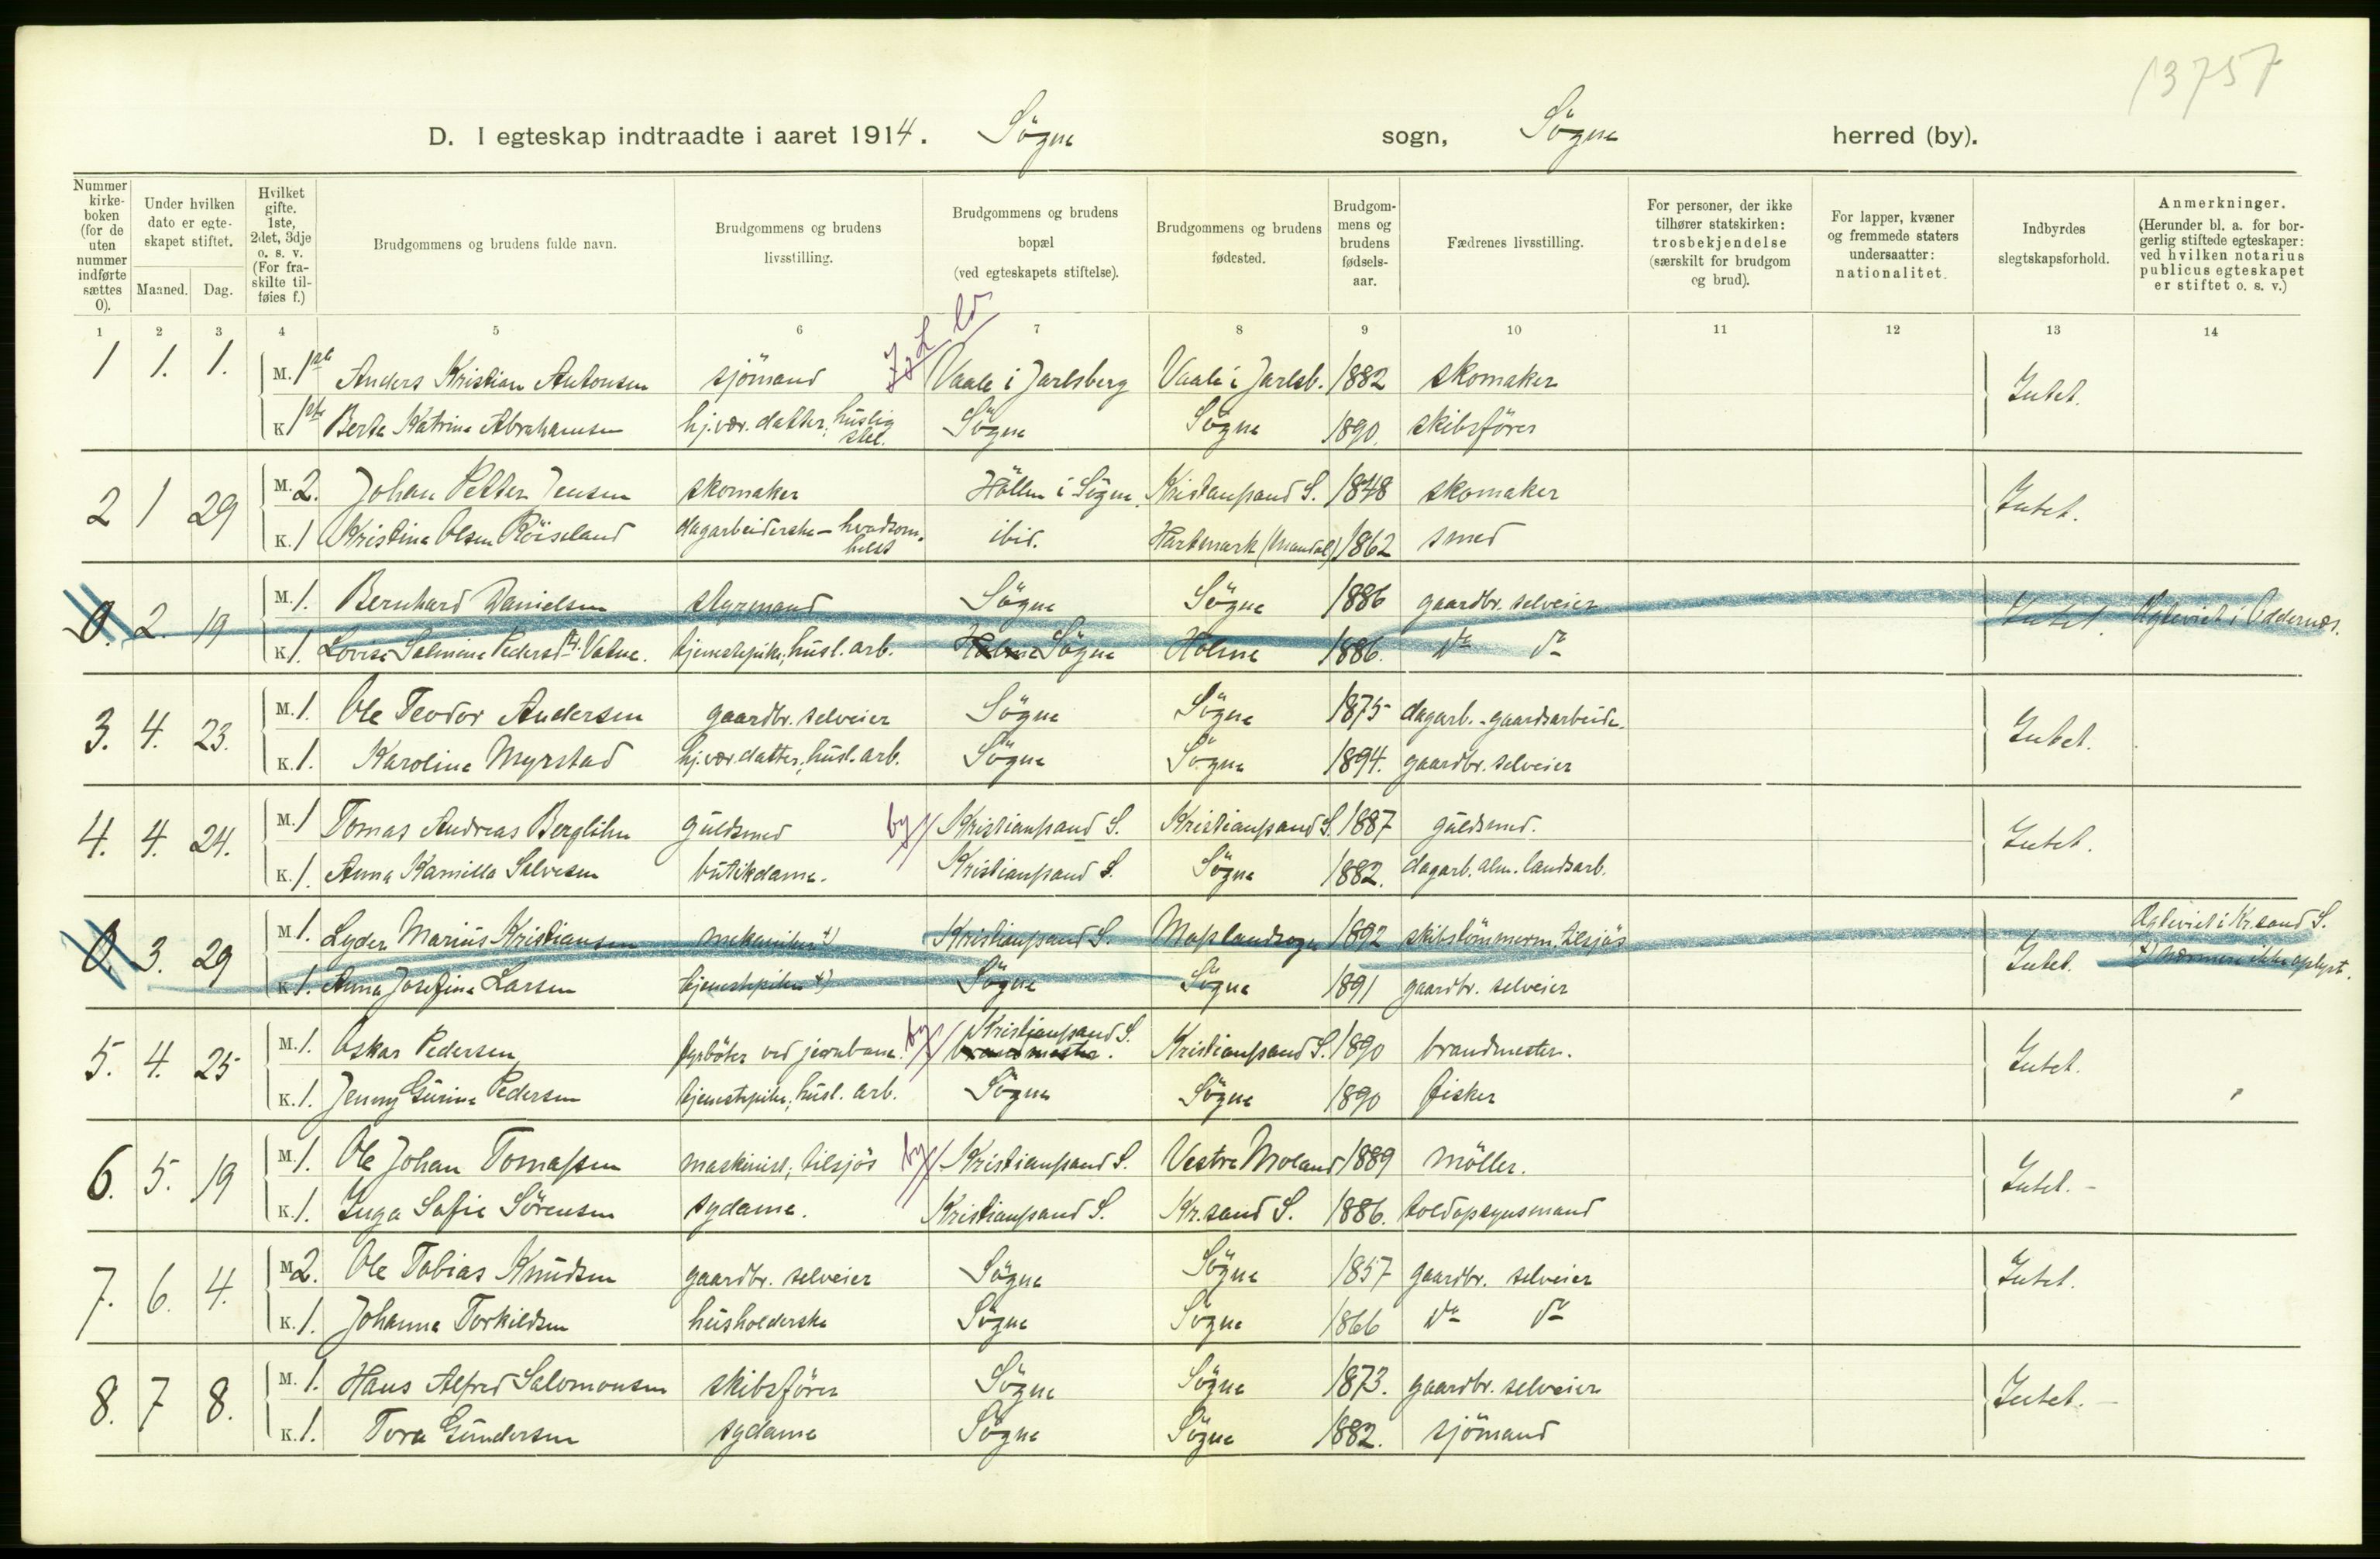 13757
D. I egteskap indtraadte i aaret 1914. Sögne sogn, Sögne herred (by).
Nummer kirke-boken (for de uten nummer indførte sættes 0).
Under hvilken dato er egte-skapet stiftet.
Maaned. Dag.
Hvilket gifte. 1ste, 2det, 3dje o. s. v. (For fra-skilte til-føies f.)
Brudgommens og brudens fulde navn.
Brudgommens og brudens livsstilling.
Brudgommens og brudens bopæl (ved egteskapets stiftelse).
Brudgommens og brudens fødested.
Brudgom-mens og brudens fødsels-aar.
Fædrenes livsstilling.
For personer, der ikke tilhører statskirken: trosbekjendelse (særskilt for brudgom og brud).
For lapper, kvæner og fremmede staters undersaatter: nationalitet.
Indbyrdes slegtskapsforhold.
Anmerkninger. (Herunder bl. a. for bor-gerlig stiftede egteskaper: ved hvilken notarius publicus egteskapet er stiftet o. s. v.)
1 2 3 4 5 6 7 8 9 10 11 12 13 14
1 1. 1. M. 1ste Anders Kristian Antonsen sjömand Vaale i Jarlsberg Vaale i Jarlsb. 1882 skomaker Intet.
K 1ste Berte Katrine Abrahamsen hj.vær. datter, huslig stel. Sögne Sögne 1890. skibsförer
2 1 29 M. 2. Johan Petter Jensen skomaker Höllen i Sögne. Kristianssand S. 1848 skomaker Intet.
K. 1 Kristine Olsen Röiseland dagarbeiderske - hvadsom-helst ibid. Hartmark (Mandal) 1862 smed
0. 2. 19 M. 1. Bernhard Danielsen styrmand Sögne Sögne 1886 gaardbr. selveier Intet. Egteviet i Oddernes.
K 1. Lovise Salmine Pedersdtr. Vatne. tjenestepike, husl. arb. Holme Sögne Holme 1886. do do
3. 4. 23. M. 1. Ole Teodor Andersen gaardbr. selveier Sögne Sögne 1875 dagarb. - gaardsarbeide. Intet.
K. 1. Karoline Myrstad hj.vær. datter, husl. arb. Sögne Sögne 1894. gaardbr. selveier
4. 4. 24. M. 1 Tomas Andreas Berglihn guldsmed by Kristianssand S. Kristianssand S. 1887 guldsmed. Intet.
K. 1. Anna Kamilla Salvesen butikdame. Kristianssand S. Sögne 1882. dagarb. alm. landsarb.
0. 3. 29 M. 1. Lyder Marius Kristiansen mekaniker x) Kristianssand S. Moslandsogn 1892 skibstömmerm. tilsjös Intet. Egteviet i Kr.sand S.
K 1. Anna Josefine Larsen tjenestepike x) Sögne Sögne 1891 gaardbr. selveier x) Nærmere ikke oplyst.
5. 4. 25 M. 1. Oskar Pedersen fyrböter ved jernbane. by Kristianssand S. brandmester. Kristianssand S. 1890 brandmester. Intet.
K. 1. Jenny Gurine Pedersen tjenestepike, husl. arb. Sögne Sögne 1890 fisker
6. 5. 19 M. 1. Ole Johan Tomassen maskinist, tilsjös by Kristianssand S. Vestre Moland 1889 möller. Intet. -
K. 1. Inga Sofie Sörensen sydame. Kristianssand S. Kr.sand S. 1886. toldopsynsmand
7. 6. 4. M 2. Ole Tobias Knudsen gaardbr. selveier Sögne Sögne 1857 gaardbr. selveier Intet.
K. 1. Johanne Torkildsen husholderske Sögne Sögne 1866 do do
8. 7 8. M. 1. Hans Alfred Salomonsen skibsförer Sögne Sögne 1873. gaardbr. selveier Intet. -
K. 1. Tora Gundersen sydame Sögne Sögne 1882. sjömand